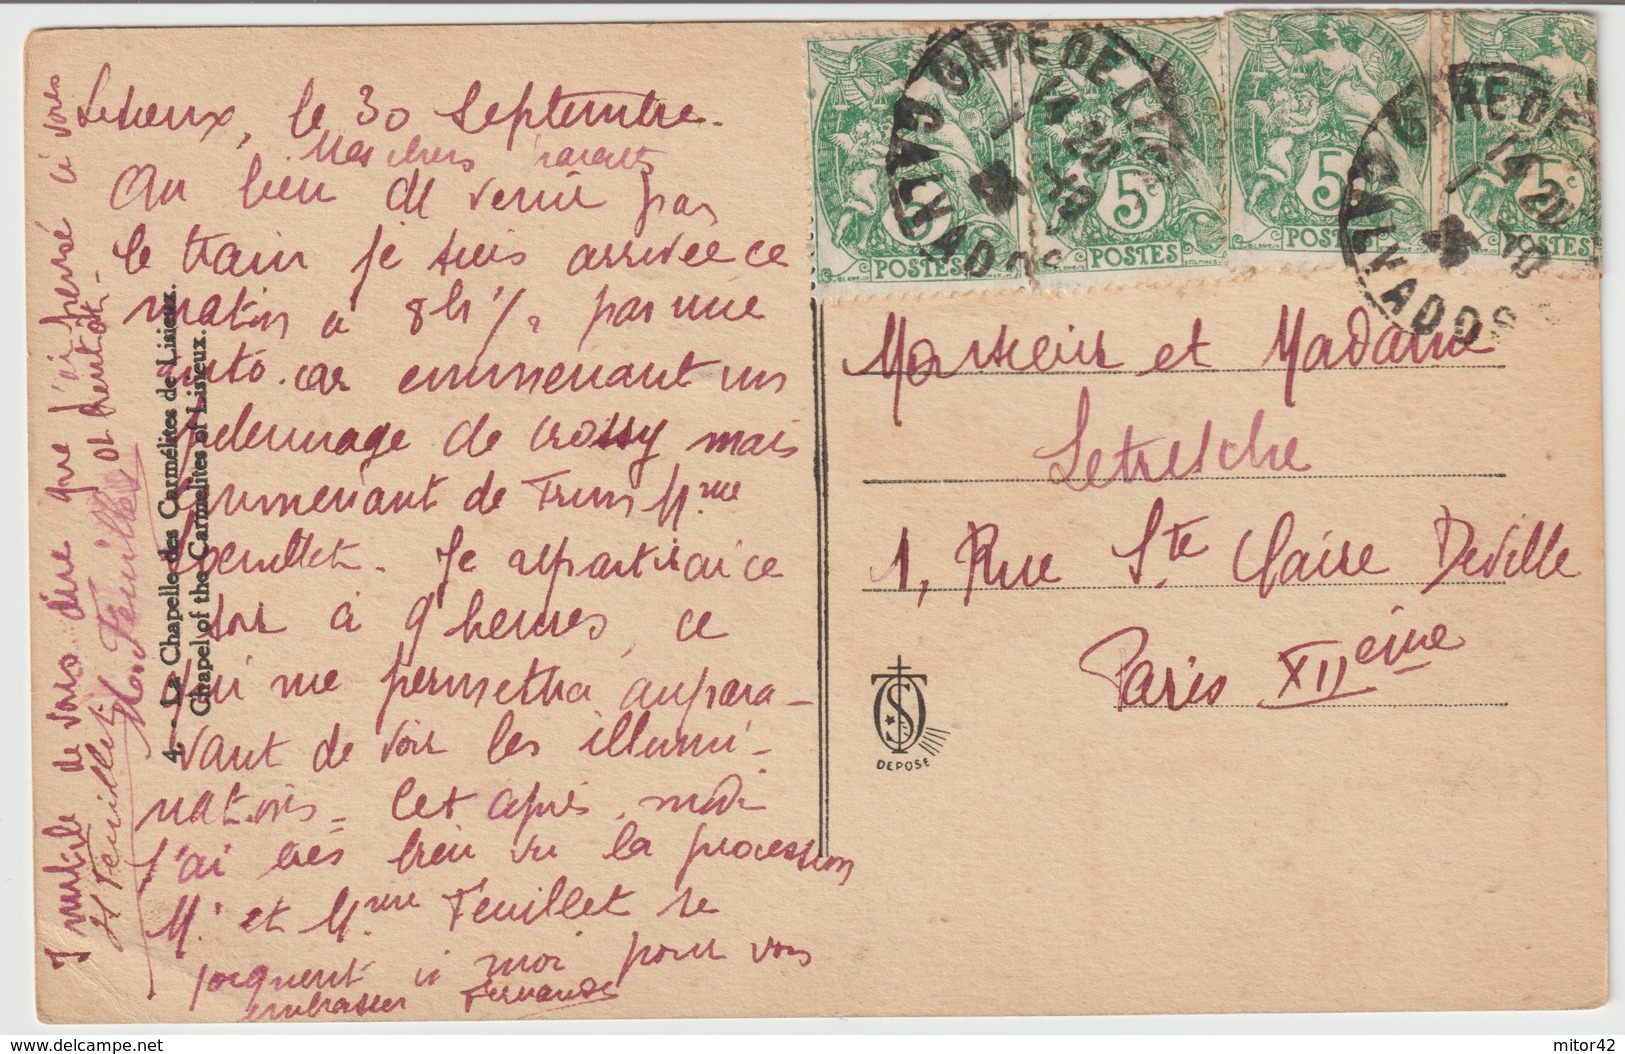 Lisieux, le 30 Septembre.
Mes chers parents
Au lieu de venir par
le train je suis arrivée ce
matin à 8h 1/2 par une
auto-car emmenant un
pelerinage de Crossy mais
emmenant de Trun Mme
Feuillet. Je repartirai ce
soir à 9 heures, ce
qui me permettra aupara-
vant de voir les illumi-
nations. Cet après midi
j'ai très bien vu la procession
Mr et Mme Feuillet se
joignent à moi pour vous
embrasser Fernande
Inutile de vous dire que j'ai pensé à vous
et bientôt.
H Feuillet
4. - La Chapelle des Carmélites de Lisieux.
Chapel of the Carmelites of Lisieux.
GARE DE LISIEUX
CALVADOS
14 20
5c
POSTES
5c
POSTES
5
POSTES
5c
POSTES
GARE DE
14 20
CALVADOS
Monsieur et Madame
Letresche
1, Rue Ste Claire Deville
Paris XIIeme
DEPOSE
https://www.delcampe.net
mitor42